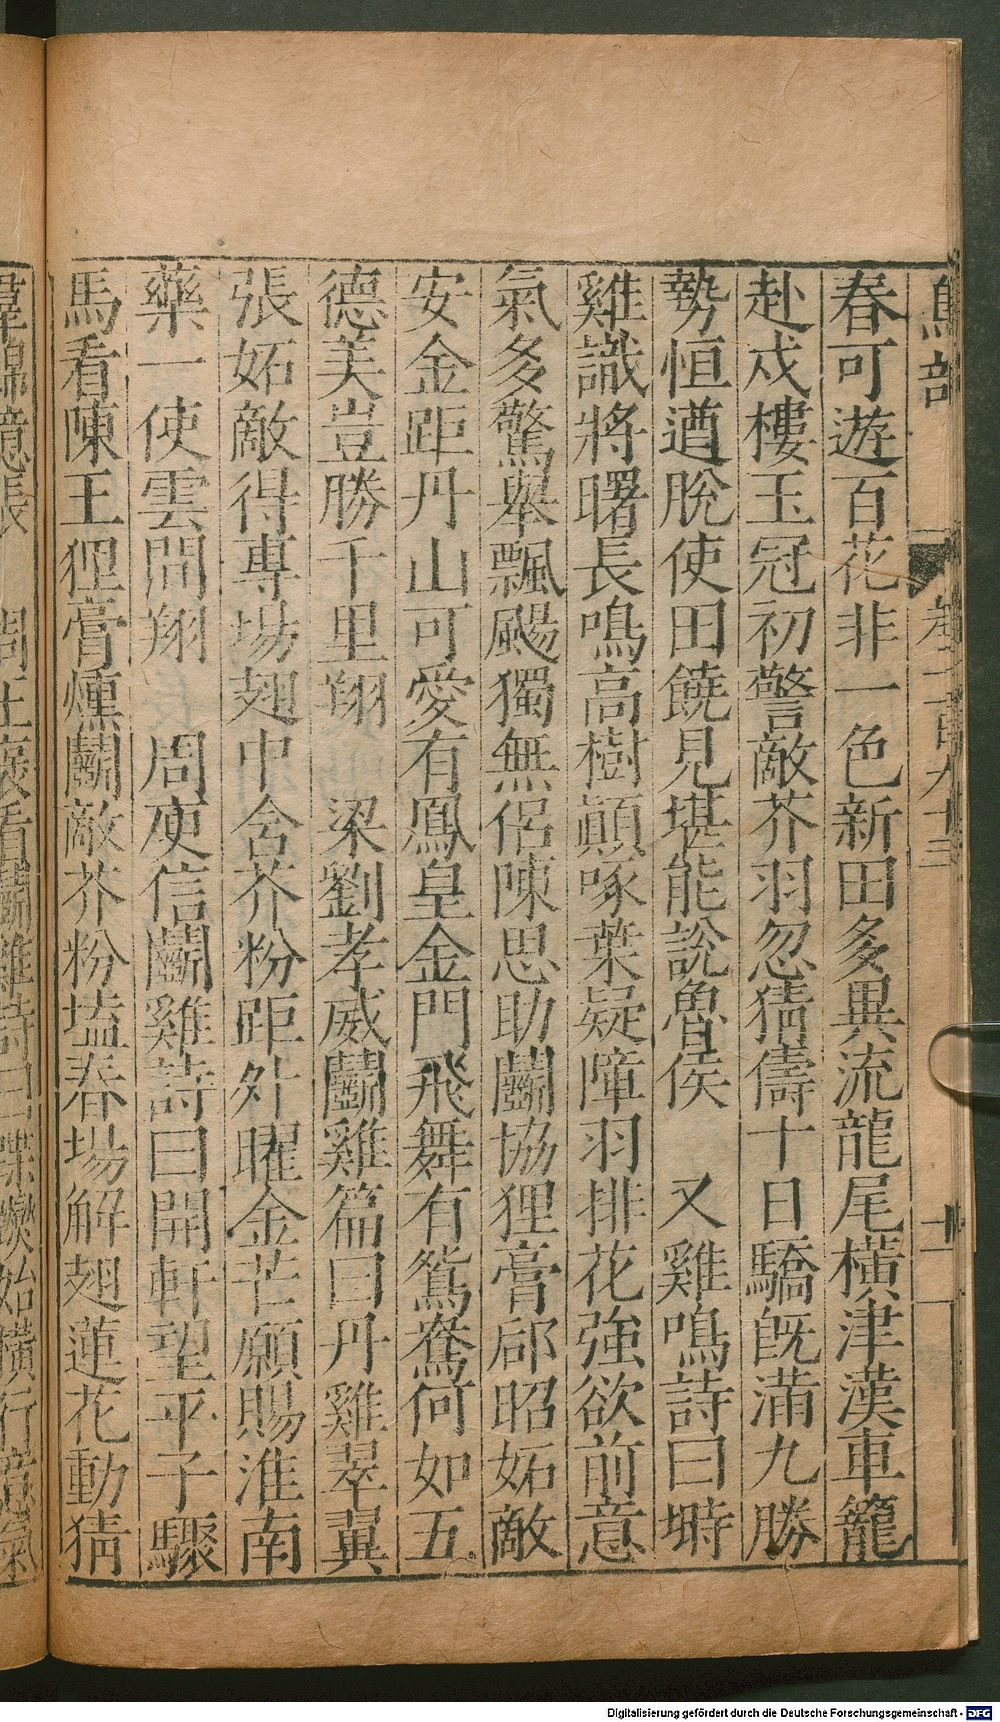 春可遊百花非一色新田多異流龍尾橫津漢車籠
赴戍樓玉冠初警敵芥羽忽猜儔十日驕旣滿九勝
勢恒遒脫使田饒見堪能說魯侯 又雞鳴詩曰塒
雞識將曙長鳴高樹顚啄葉疑障羽排花強欲前意
氣多驚舉飄颺獨無侶陳思助鬭協狸膏郈昭妬敵
安金距丹山可愛有鳳皇金門飛舞有鴛鴦何如五
德美豈勝千里翔 梁劉孝威鬭雞篇曰丹雞翠翼
張妬敵得專場翅中含芥粉距外曜金芒願賜淮南
藥一使雲間翔 周庾信鬭雞詩曰開軒望平子驟
馬看陳王狸膏燻鬭敵芥粉壒春場解翅蓮花動猜
羣錦臆張 周王襃看鬭雞詩曰蹀躞始橫行意氣
鳥部 卷二百九十三 十一
Digitalisierung gefördert durch die Deutsche Forschungsgemeinschaft - DFG